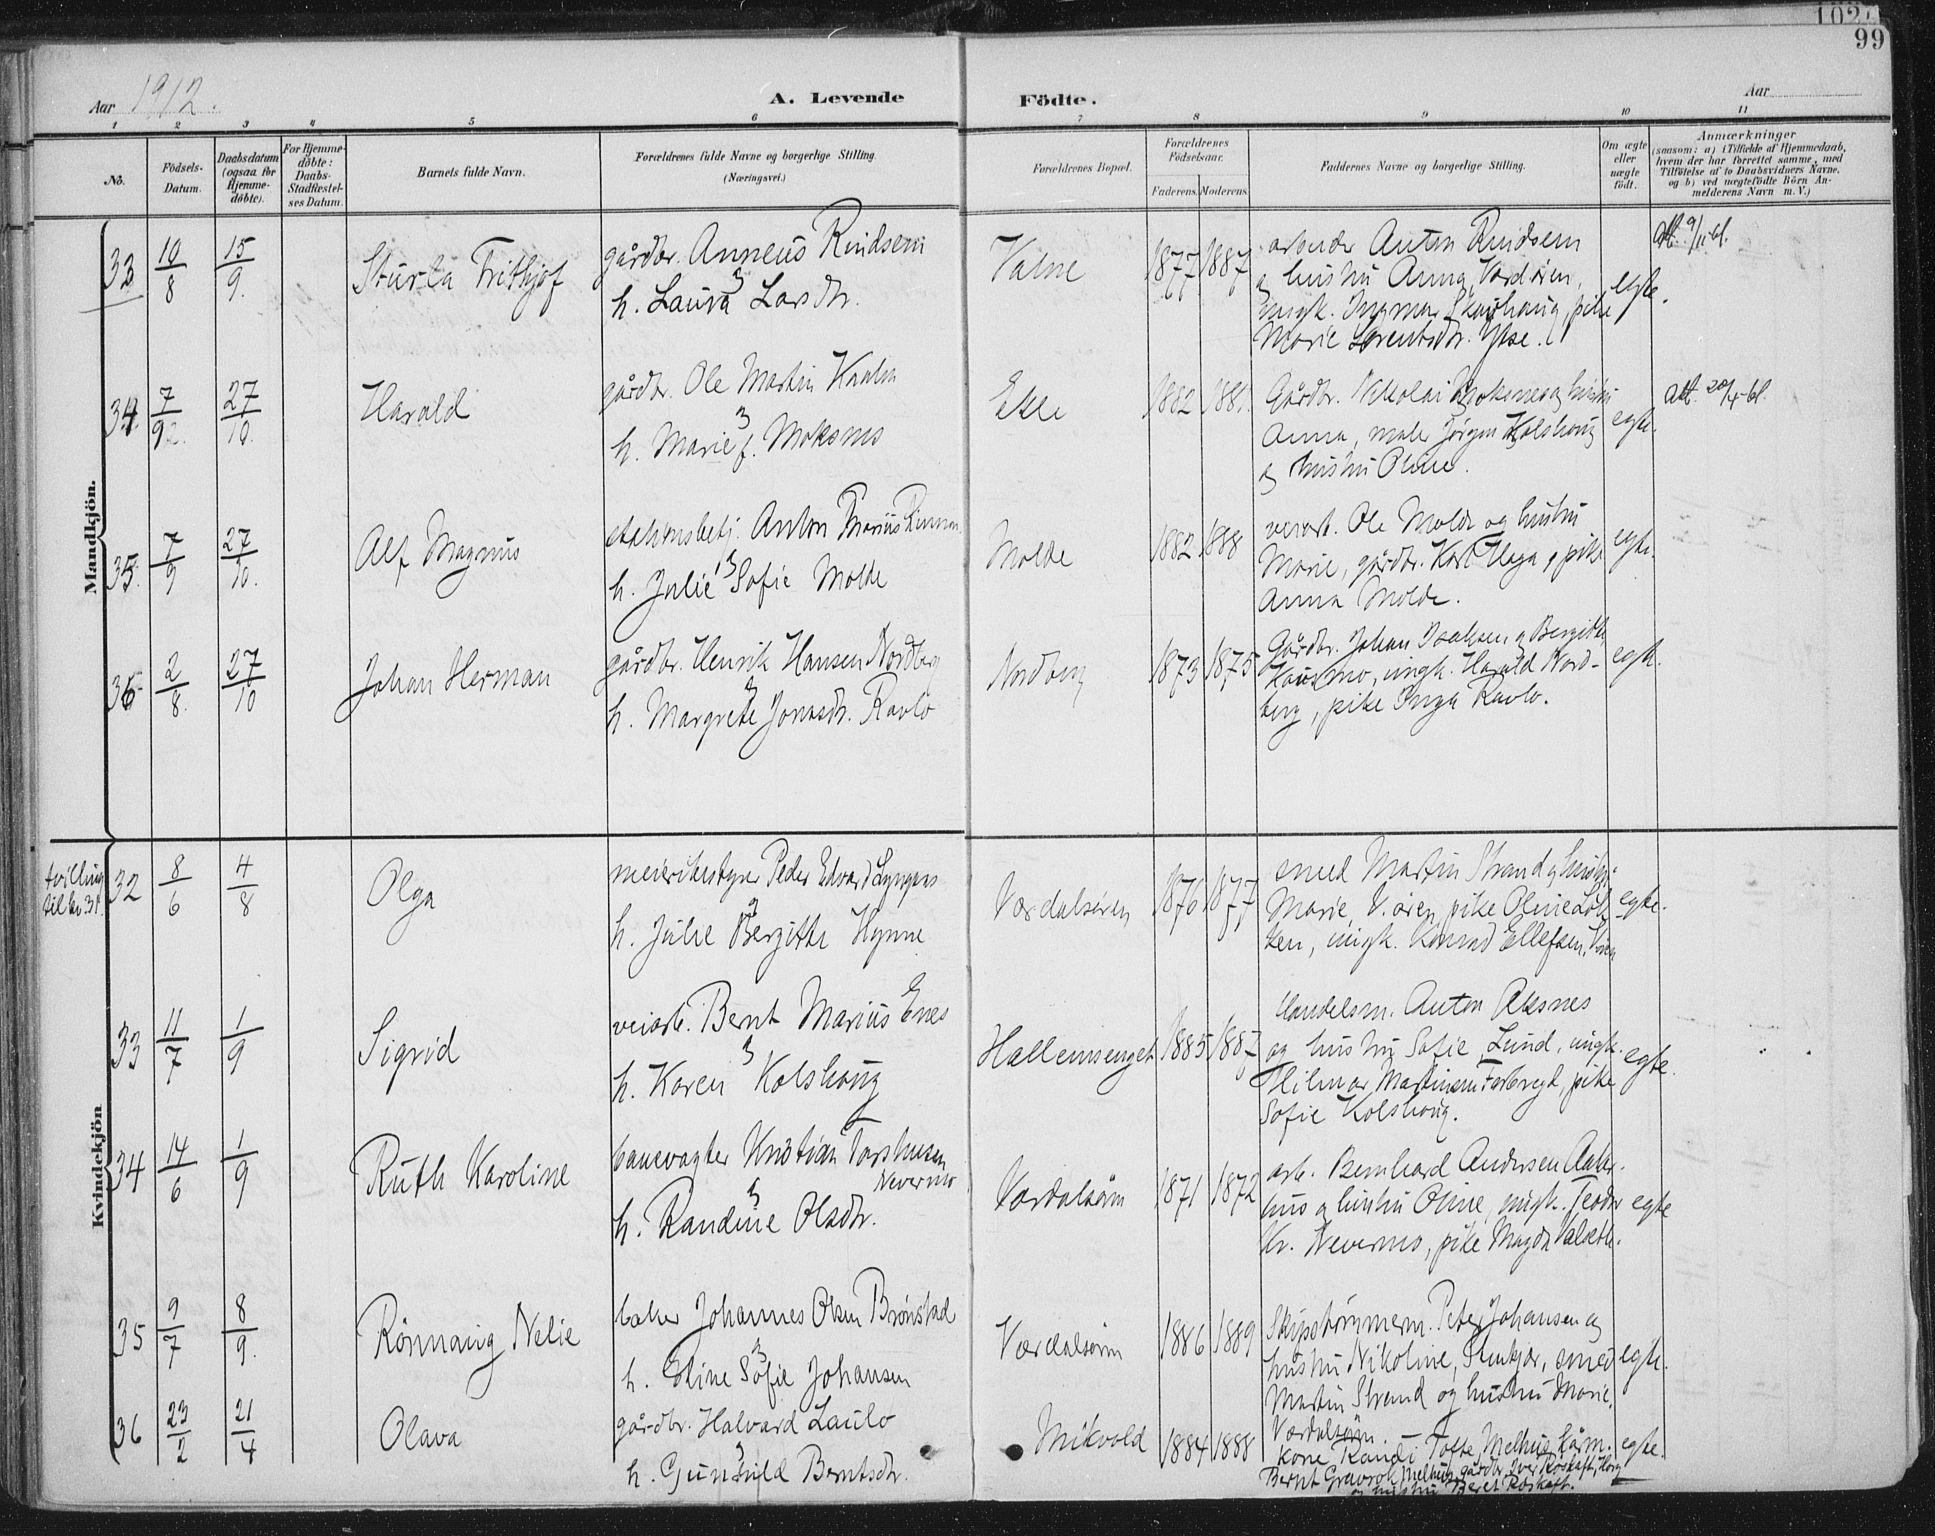 102
99
Aar 1912.
A. Levende
Födte.
Aar
1 2 3 4 5 6 7 8 9 10 11
No.
Födsels-Datum.
Daabsdatum (ogsaa for Hjemme-döbte).
For Hjemme-döbte: Daabs-Stadfæstel-ses Datum.
Barnets fulde Navn.
Forældrenes fulde Navne og borgerlige Stilling.
(Næringsvei.)
Forældrenes Bopæl.
Forældrenes Födselsaar.
Faderens. Moderens.
Faddernes Navne og borgerlige Stilling.
Om ægte eller uægte födt.
Anmærkninger
(saasom: a) i Tilfælde af Hjemmedaab,
hvem der har forrettet samme, med
Tilföielse af to Daabsvidners Navne,
og b) ved uægtefödte Börn An-
melderens Navn m. V.)
Mandkjön.
33 10/8 15/9. Sturla Frithjof
gårdbr. Anneus Rindsem
h. Laura Larsdtr.
1877 1887
arbeider Anton Rindsem
og hustru Anna, Værdøren,
ungk. Ingmar Skavhaug, pike
Marie Lorentsdtr. Ydse.
egte.
34. 7/9 27/10. Harald
gårdbr. Ole Martin
h. Marie f. Moksnes
Ekle 1882
Gårdbr. Nikolai Moksnes og hustru
Anna, maler Jørgen Kolshaug
og hustru Oline.
egte.
35. 7/9 27/10. Alf Magnus
stationsbetj. Anton Marius
h. Julie Sofie Molde
Molde 1882 1888
veiarb. Ole Molde og hustru
Marie, gårdbr. Karl og pike
Anna Molde.
egte.
36 2/8. 27/10 Johan Herman
gårdbr. Henrik Hansen Nordberg
h. Margrete Jonasdtr. Ravlo
Nordberg 1873 1875
Gårdbr. Johan Isaksen og Bergitte
Hausmo, ungk. Harald Nord-
berg, pike Inga Ravlo.
egte.
Kvindekjön
tvilling
til nr 31.
32 8/6 4/8 Olga
meieribestyrer Peder Edvard Lyngaas
h. Julie Bergitte Hynne
Værdalsøren 1876 1877
smed Martin Strand og hustru
Marie, V.øren, pike Oline
ken, ungk. Konrad Ellefsen,
egte.
33 11/7 1/9 Sigrid
veiarb. Bernt Marius Enes
h. Karen Kolshaug
Hallemsenget 1885 1887
Handelsm. Anton Aksnes
og hustru Sofie, Lund, ungk.
Hilmar Martinsen Forbregd, pike
Sofie Kolshaug.
egte.
34 14/6 1/9 Ruth Karoline
banevogter Kristian
Nevermo
h. Randine Olsdtr.
Værdalsøren 1871 1872
arb. Bernhard Andersen Aaker-
hus og hustru Oline, ungk. Teodor
Kr. Nevermo, pike Magda
egte
35 9/7 8/9. Rönnaug Nelie
baker Johannes Olsen Brønstad
h. Eline Sofie Johansen
Værdalsøren 1886 1889
Skipstømmerm. Peter Johansen og
hustru Nikoline, Stenkjær, smed
Martin Strand og hustru Marie,
Værdalsøren.
egte.
36 23/2 21/4 Olava
gårdbr. Halvard Laulo
h. Gunhild Berntsdtr.
Mikvold 1884 1888
Kone Randi Tofte, Melhus,
Bernt Gravrok, Melhus, gårdbr. Iver Røskaft, Horg
og hustru Beret Røskaft.
egte.